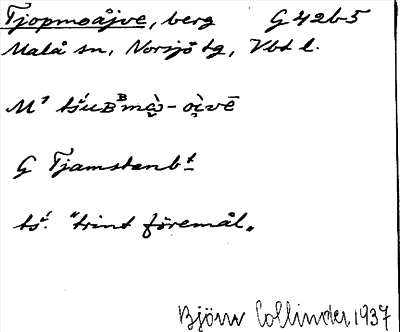 Tjopmoåjve, berg G 42b5
Malå sn, Norsjö tg, Vbt l.
G Tjamstenbt
"trint föremål"
Björn Collinder 1937